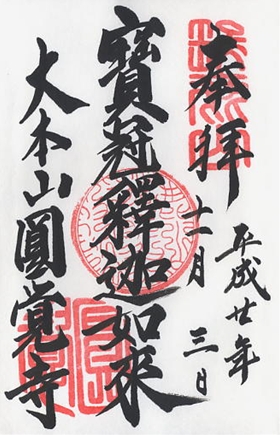 奉拝
平成廿年
十一月三日
寶冠釋迦如來
大本山圓覺寺